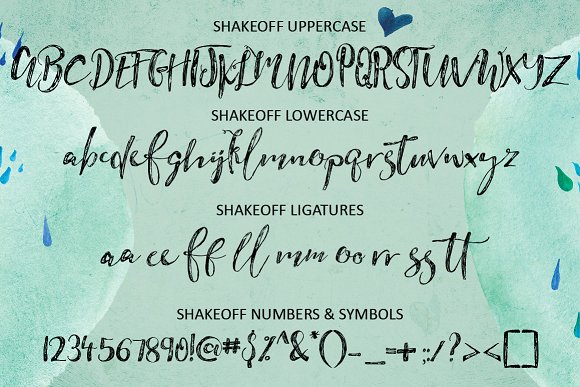 SHAKEOFF UPPERCASE
ABCDEFGHIJKLMNOPQRSTUVWXYZ
SHAKEOFF LOWERCASE
abcdefghijklmnopqrstuvwxyz
SHAKEOFF LIGATURES
aa ee ff ll mm oo rr ss tt
SHAKEOFF NUMBERS & SYMBOLS
1234567890!@#$%^&*()-_=+;:/?><[]